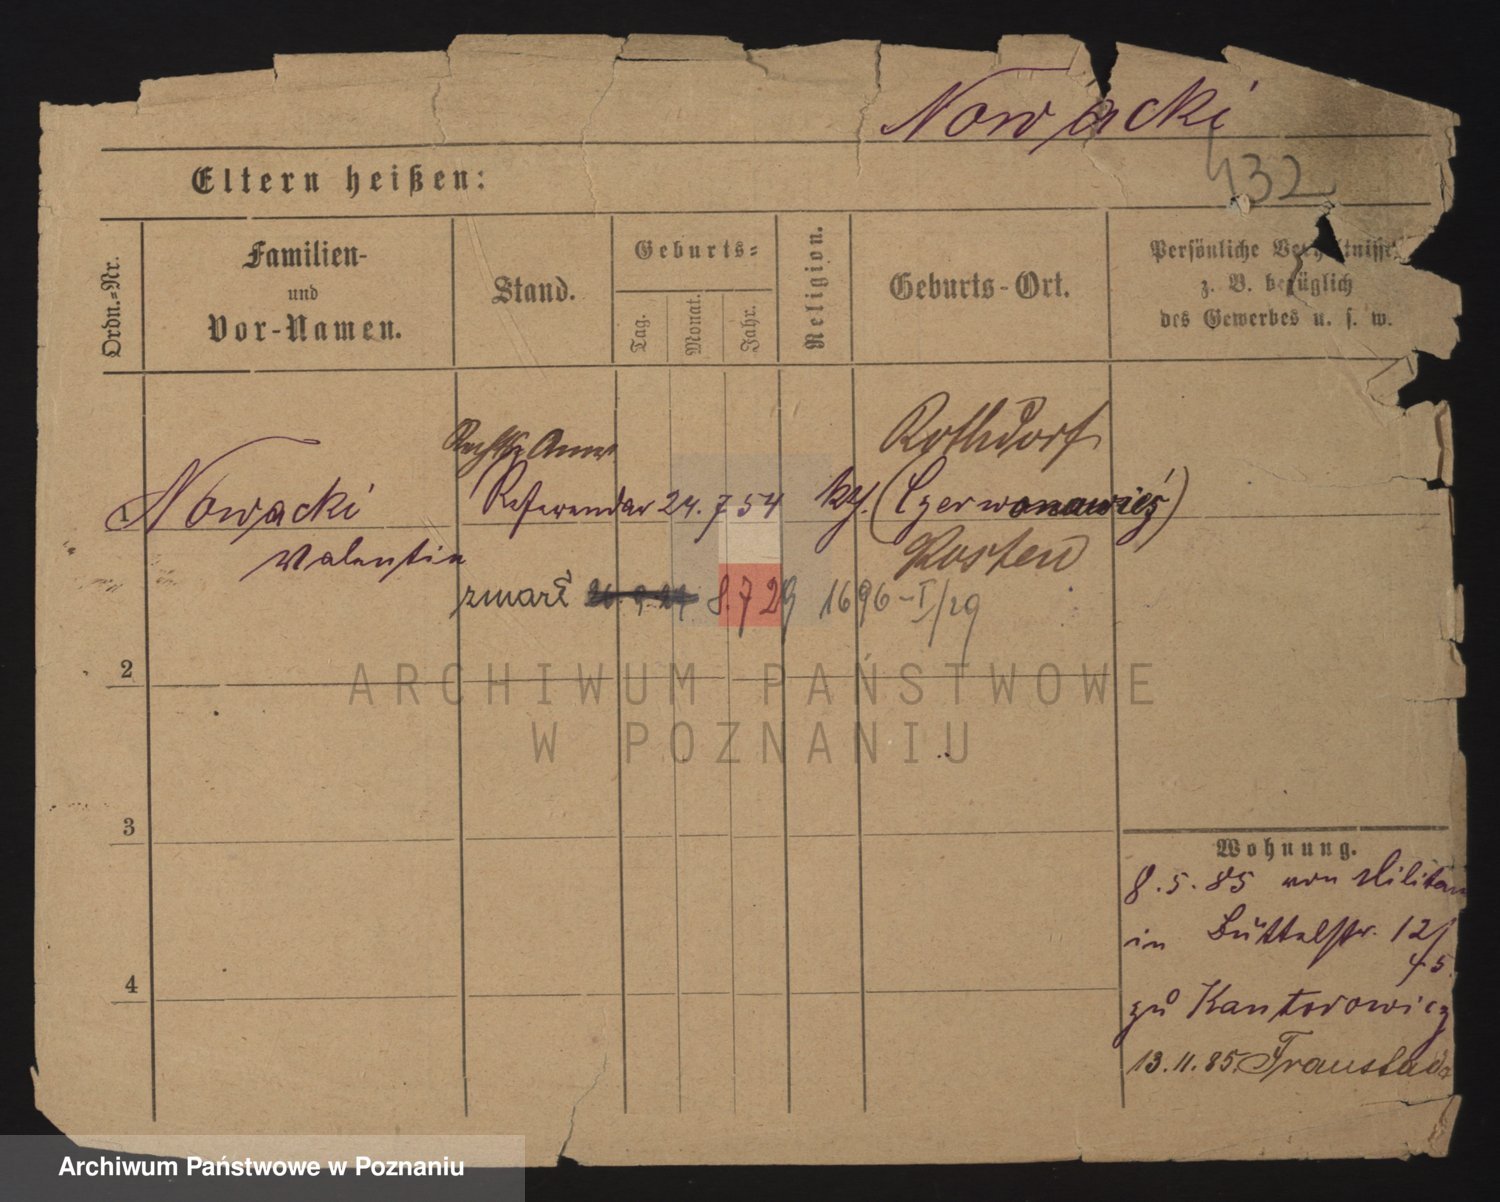 Nowacki
432
Eltern heißen:
Ordn.-Nr.
Familien-
und
Vor-Namen.
Stand.
Geburts-
Tag.
Monat.
Jahr.
Religion.
Geburts-Ort.
Persönliche Verhältnisse
z. B. bezüglich
des Gewerbes u. s. w.
Rothdorf
Nowacki Referendar 24. 7 54 kth. (Czerwonawieś)
Valentin Kosten
zmarł 8.7 29 1696-I/29
2
ARCHIWUM PAŃSTWOWE
W POZNANIU
3
Wohnung.
8.5.85 von Militair
in Büttelstr. 12/
45.
zu Kantorowicz
4
13.11.85. Fraustadt
Archiwum Państwowe w Poznaniu